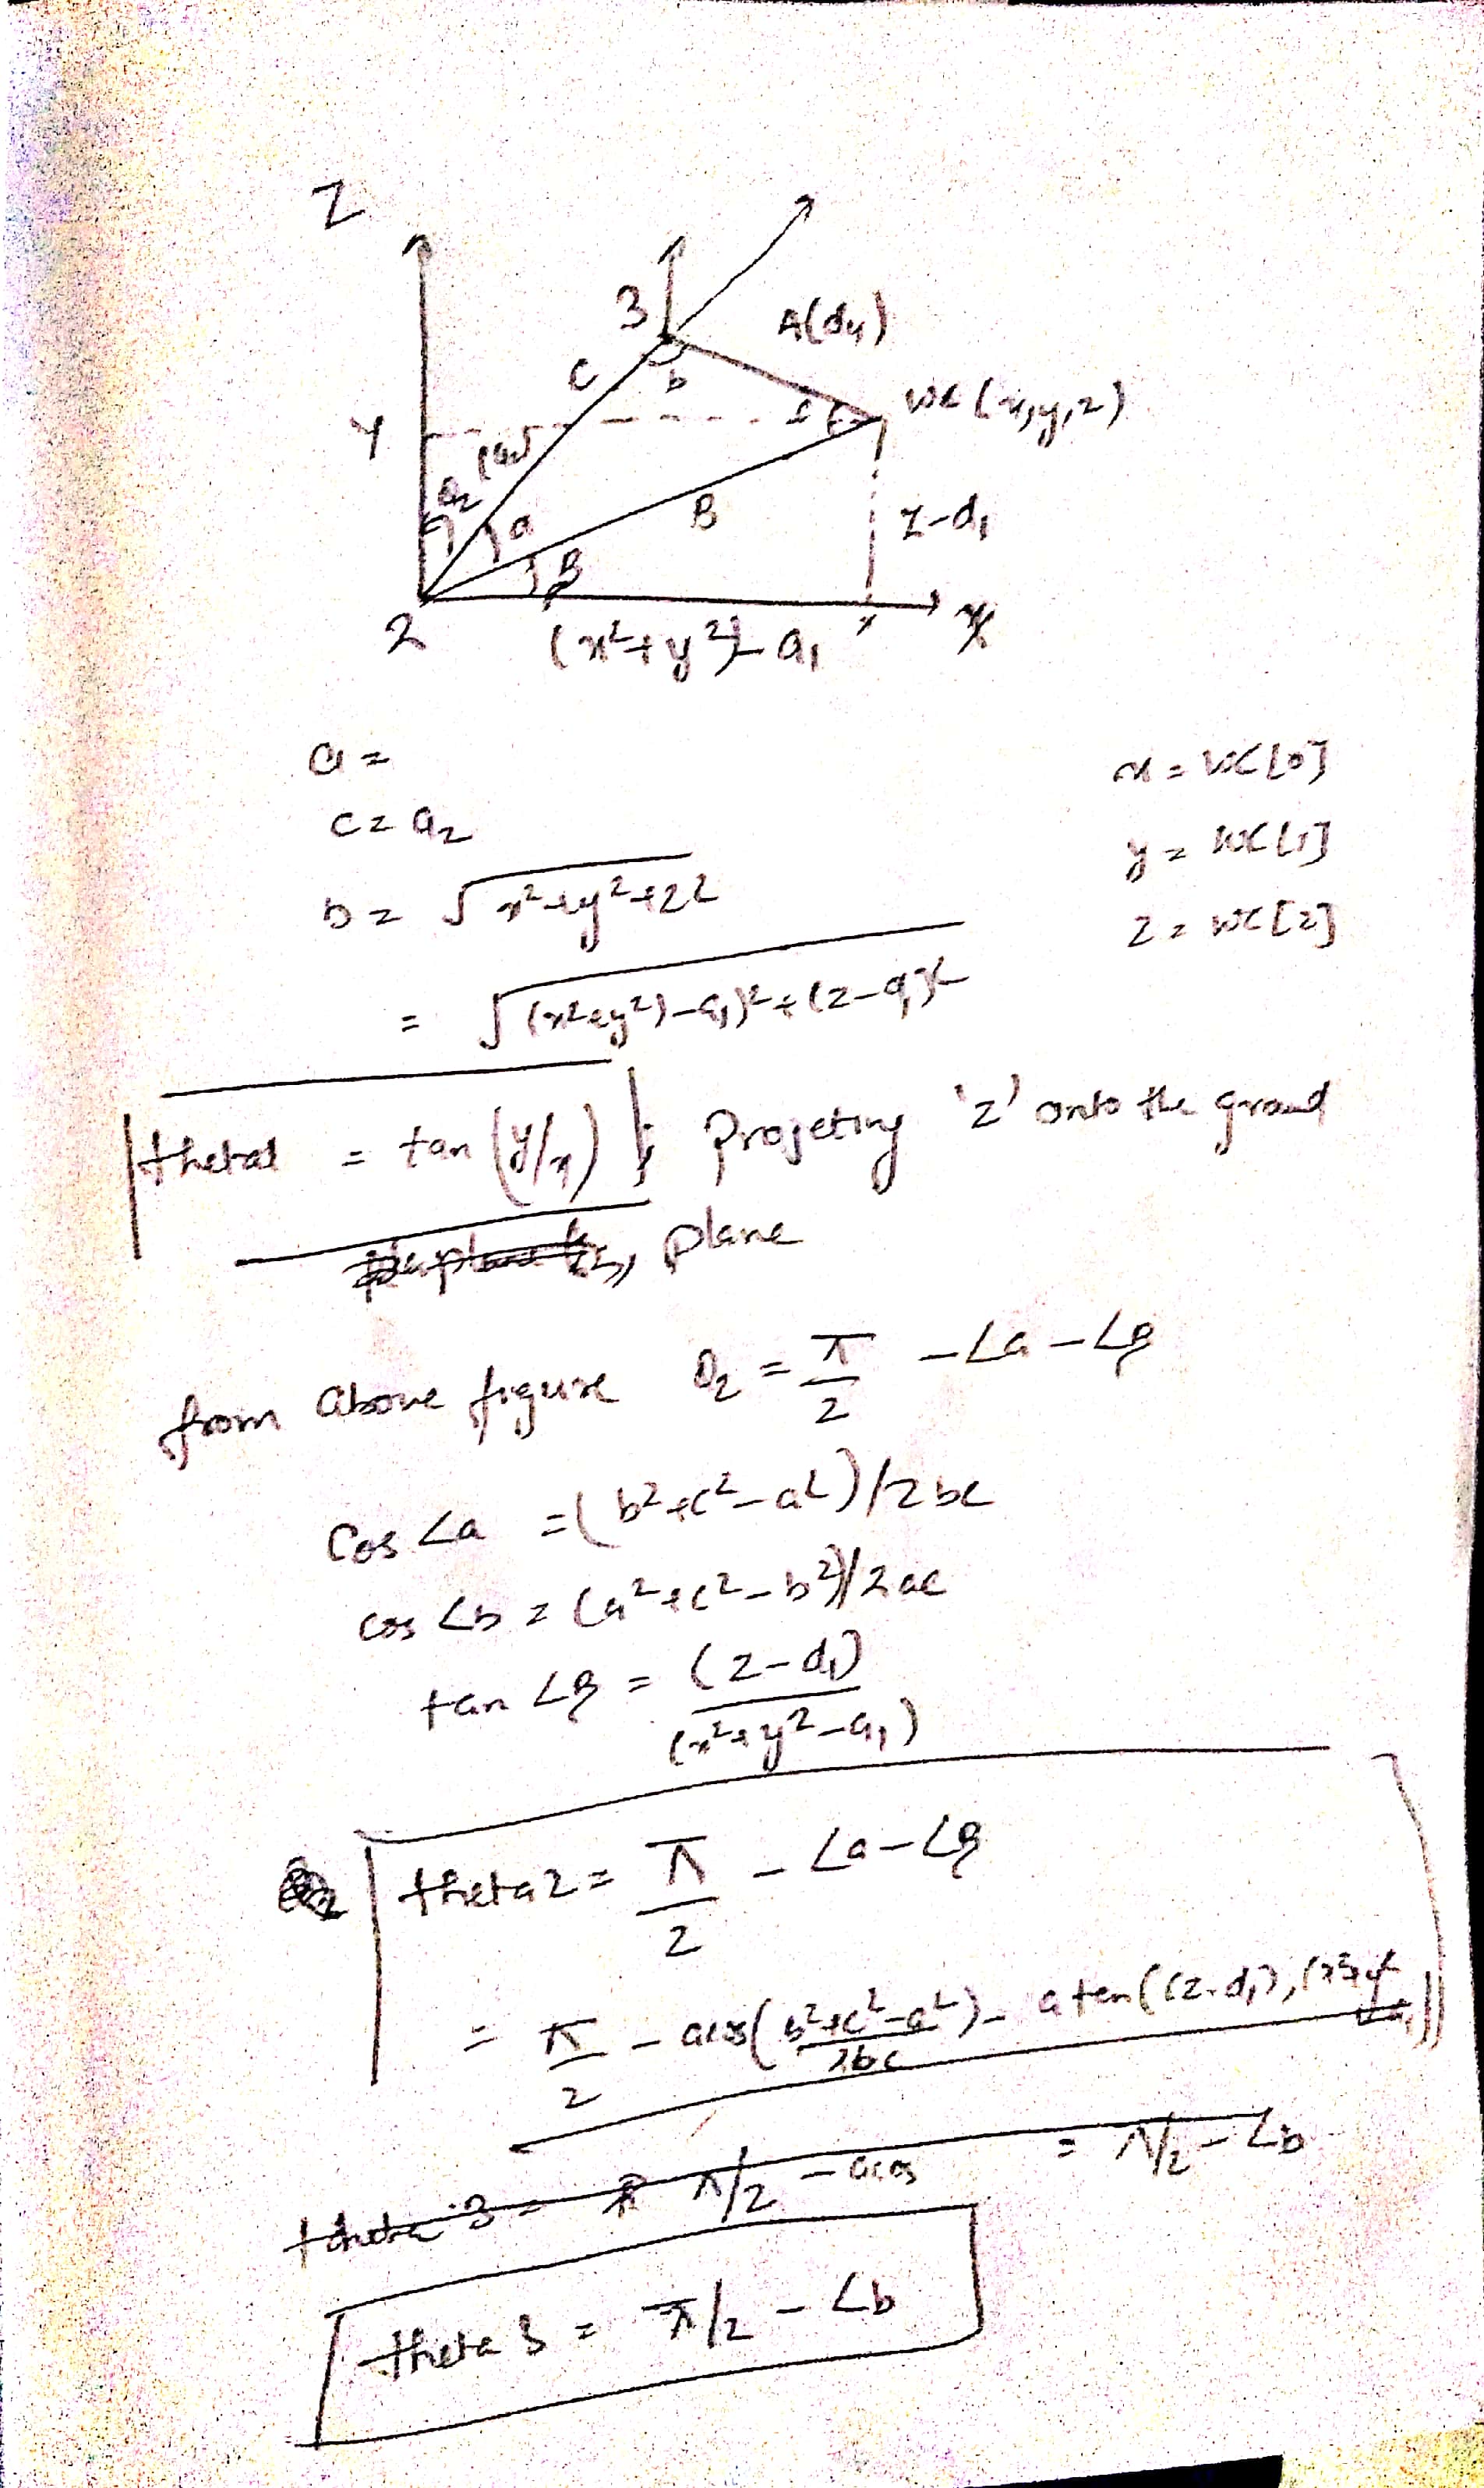 Z
3
A(d4)
C
b
WC (x,y,z)
Y
(a2)
θ2
a
B
Z-d1
β
2
(x²+y²)-a1
x
a =
c = a2
b = √x²+y²+z²
= √(x²+y²)-a1)²+(z-d1)²
x = WC[0]
y = WC[1]
z = WC[2]
theta1 = tan(y/x) ; Projeting 'z' onto the ground
plane
from above figure θ2 = π/2 - ∠a - ∠β
Cos ∠a = (b²+c²-a²)/2bc
cos ∠b = (a²+c²-b²)/2ac
tan ∠β = (z-d1)/(x²+y²-a1)
theta2 = π/2 - ∠a - ∠β
= π/2 - acos(b²+c²-a²/2bc) - atan((z-d1), (x²+y²-a1))
theta 3 = π/2 - acos = π/2 - ∠b
theta 3 = π/2 - ∠b